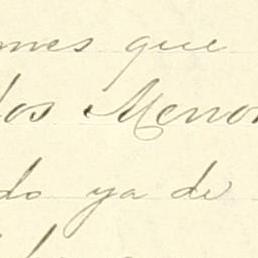 mes que
los Menor
do ya de